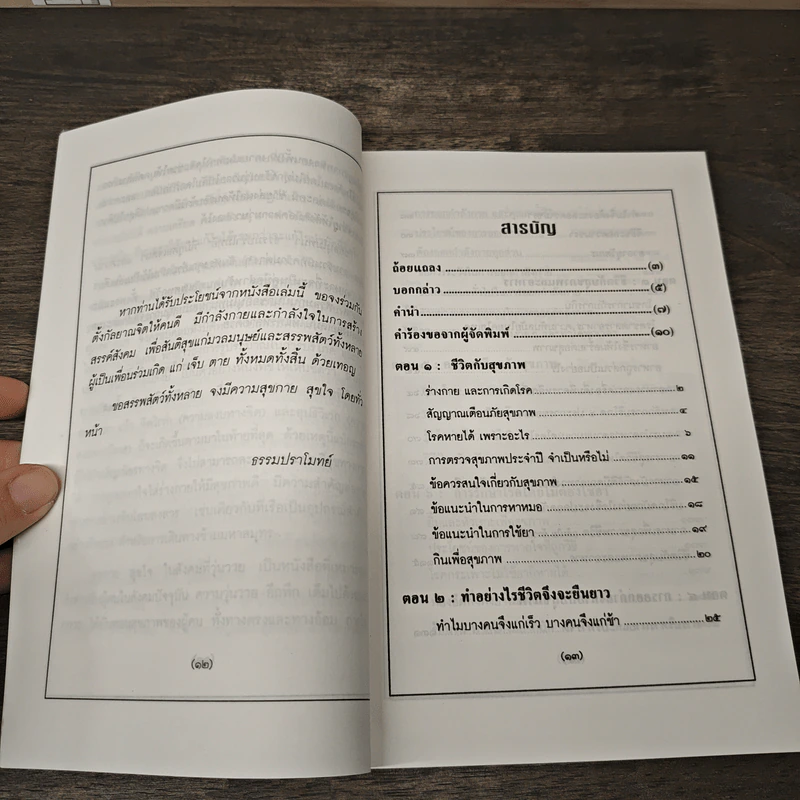 หากท่านได้รับประโยชน์จากหนังสือเล่มนี้ ขอจงร่วมกัน
ตั้งกัลยาณจิตให้คนดี มีกำลังกายและกำลังใจในการสร้าง
สรรค์สังคม เพื่อสันติสุขแก่มวลมนุษย์และสรรพสัตว์ทั้งหลาย
ผู้เป็นเพื่อนร่วมเกิด แก่ เจ็บ ตาย ทั้งหมดทั้งสิ้น ด้วยเทอญ
ขอสรรพสัตว์ทั้งหลาย จงมีความสุขกาย สุขใจ โดยทั่ว
หน้า
ธรรมปราโมทย์
(๑๒)
สารบัญ
ถ้อยแถลง ........................................ (๓)
บอกกล่าว ........................................ (๕)
คำนำ ........................................ (๗)
คำร้องขอจากผู้จัดพิมพ์ ........................................ (๑๐)
ตอน ๑ : ชีวิตกับสุขภาพ
ร่างกาย และการเกิดโรค ........................................ ๒
สัญญาณเตือนภัยสุขภาพ ........................................ ๔
โรคหายได้ เพราะอะไร ........................................ ๖
การตรวจสุขภาพประจำปี จำเป็นหรือไม่ ........................................ ๑๑
ข้อควรสนใจเกี่ยวกับสุขภาพ ........................................ ๑๕
ข้อแนะนำในการหาหมอ ........................................ ๑๘
ข้อแนะนำในการใช้ยา ........................................ ๑๙
กินเพื่อสุขภาพ ........................................ ๒๐
ตอน ๒ : ทำอย่างไรชีวิตจึงจะยืนยาว
ทำไมบางคนจึงแก่เร็ว บางคนจึงแก่ช้า ........................................ ๒๕
(๑๓)